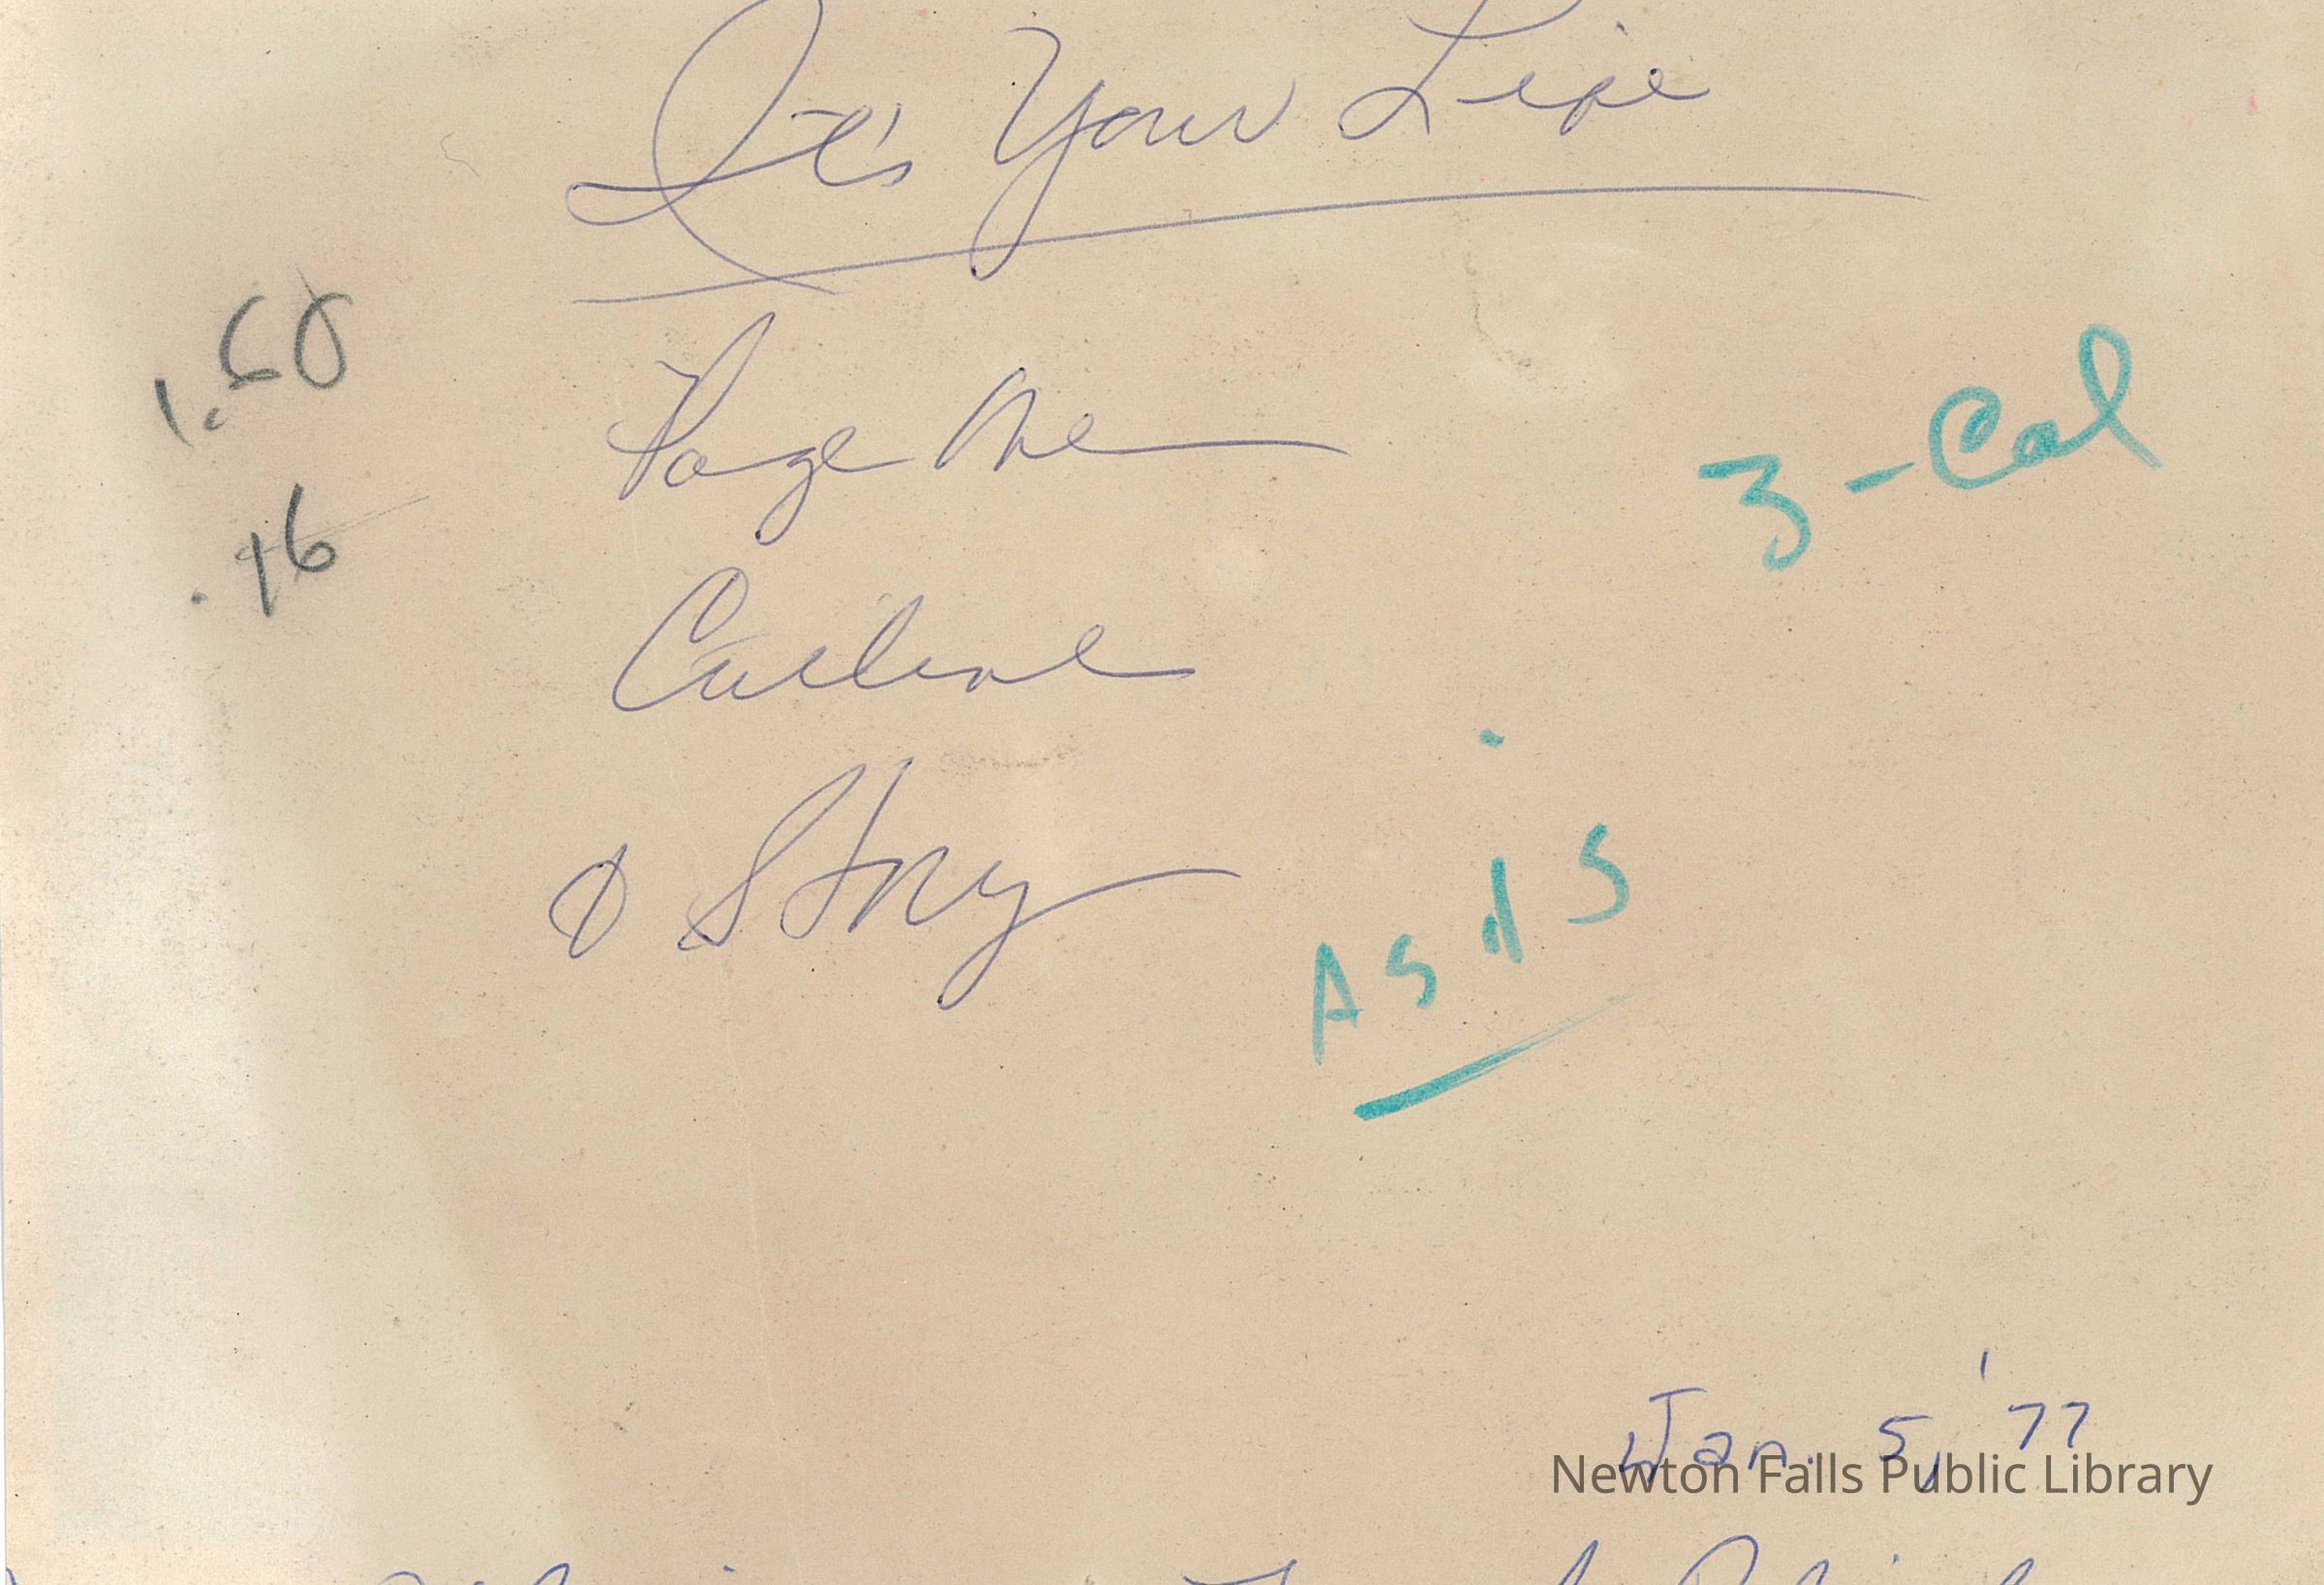 It's Your Life
1.50
Page One
3-Cal
.96
Cutline
& Story
As is
Jan. 5, '77
Newton Falls Public Library